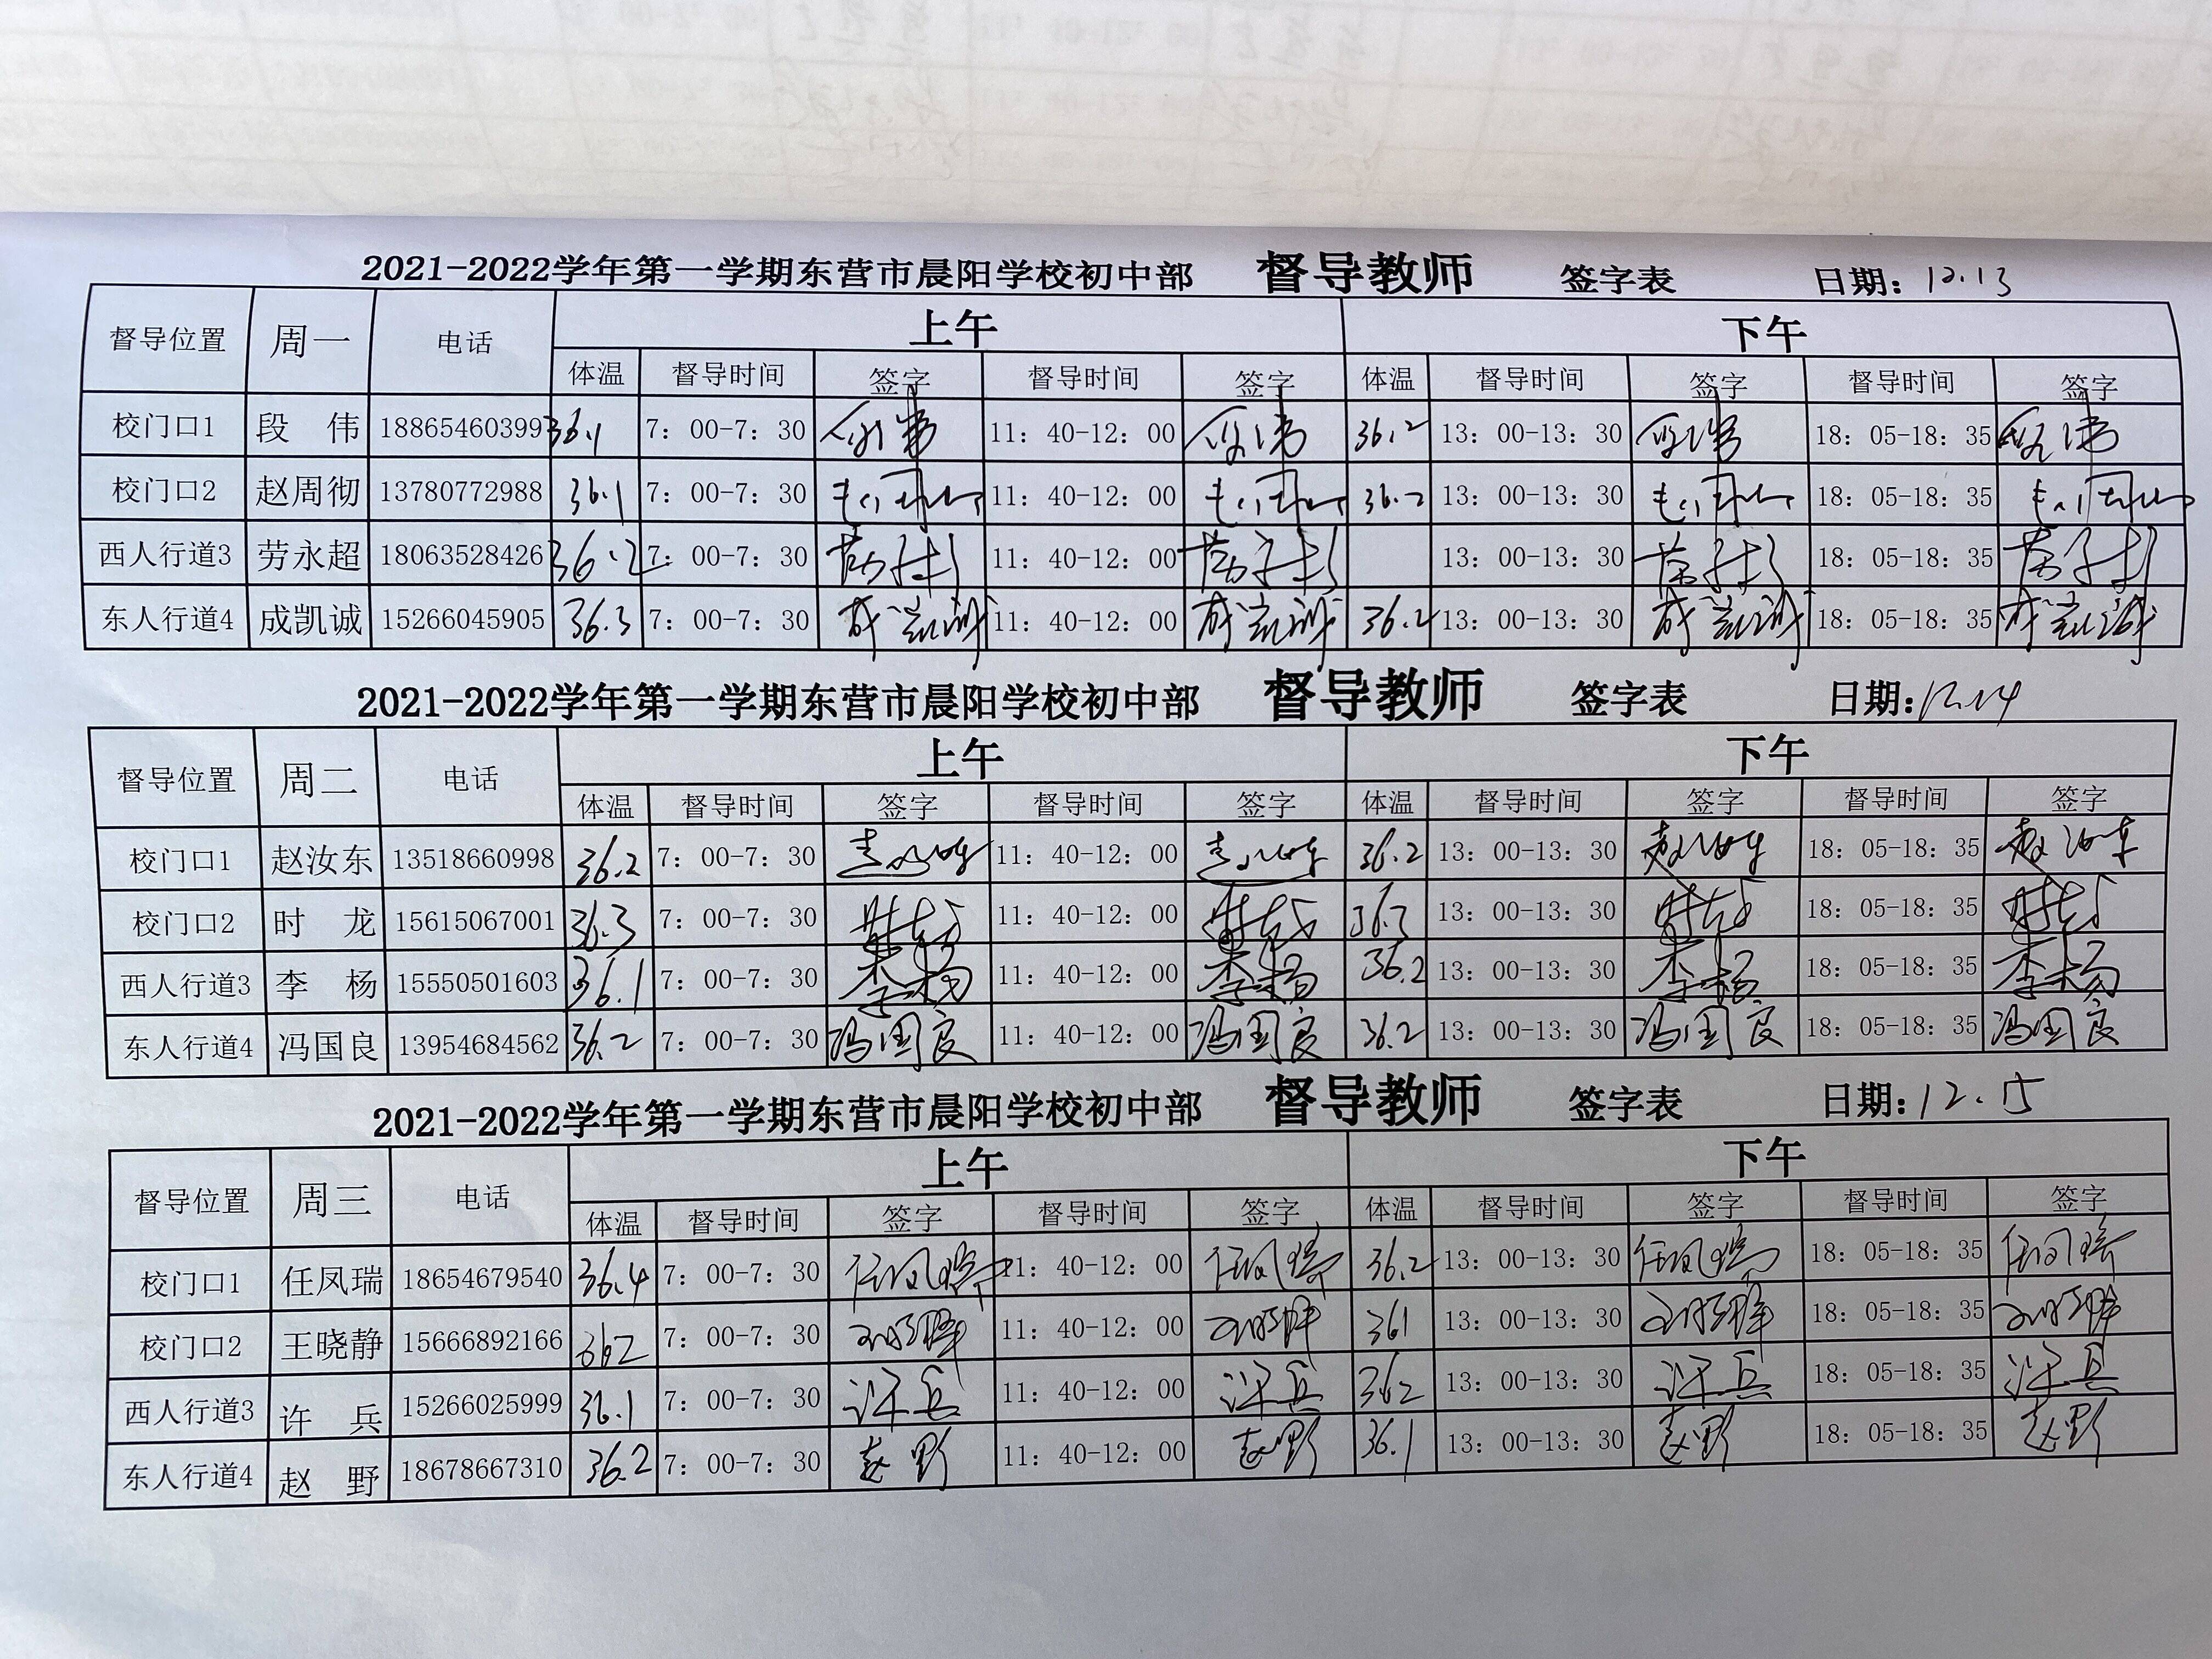 2021-2022学年第一学期东营市晨阳学校初中部 督导教师 签字表 日期：12.13
督导位置 周一 电话 上午 下午
体温 督导时间 签字 督导时间 签字 体温 督导时间 签字 督导时间 签字
校门口1 段 伟 18865460399 36.1 7：00-7：30 段伟 11：40-12：00 段伟 36.2 13：00-13：30 段伟 18：05-18：35 段伟
校门口2 赵周彻 13780772988 36.1 7：00-7：30 11：40-12：00 36.2 13：00-13：30 18：05-18：35
西人行道3 劳永超 18063528426 36.2 7：00-7：30 11：40-12：00 13：00-13：30 18：05-18：35
东人行道4 成凯诚 15266045905 36.3 7：00-7：30 成凯诚 11：40-12：00 成凯诚 36.2 13：00-13：30 成凯诚 18：05-18：35 成凯诚
2021-2022学年第一学期东营市晨阳学校初中部 督导教师 签字表 日期：12.14
督导位置 周二 电话 上午 下午
体温 督导时间 签字 督导时间 签字 体温 督导时间 签字 督导时间 签字
校门口1 赵汝东 13518660998 36.2 7：00-7：30 赵汝东 11：40-12：00 赵汝东 36.2 13：00-13：30 赵汝东 18：05-18：35 赵汝东
校门口2 时 龙 15615067001 36.3 7：00-7：30 时龙 11：40-12：00 时龙 36.3 13：00-13：30 时龙 18：05-18：35 时龙
西人行道3 李 杨 15550501603 36.1 7：00-7：30 李杨 11：40-12：00 李杨 36.2 13：00-13：30 李杨 18：05-18：35 李杨
东人行道4 冯国良 13954684562 36.2 7：00-7：30 冯国良 11：40-12：00 冯国良 36.2 13：00-13：30 冯国良 18：05-18：35 冯国良
2021-2022学年第一学期东营市晨阳学校初中部 督导教师 签字表 日期：12.15
督导位置 周三 电话 上午 下午
体温 督导时间 签字 督导时间 签字 体温 督导时间 签字 督导时间 签字
校门口1 任凤瑞 18654679540 36.4 7：00-7：30 任凤瑞 11：40-12：00 任凤瑞 36.2 13：00-13：30 任凤瑞 18：05-18：35 任凤瑞
校门口2 王晓静 15666892166 362 7：00-7：30 王晓静 11：40-12：00 王晓静 361 13：00-13：30 王晓静 18：05-18：35 王晓静
西人行道3 许 兵 15266025999 36.1 7：00-7：30 许兵 11：40-12：00 许兵 362 13：00-13：30 许兵 18：05-18：35 许兵
东人行道4 赵 野 18678667310 36.2 7：00-7：30 赵野 11：40-12：00 赵野 36.1 13：00-13：30 赵野 18：05-18：35 赵野